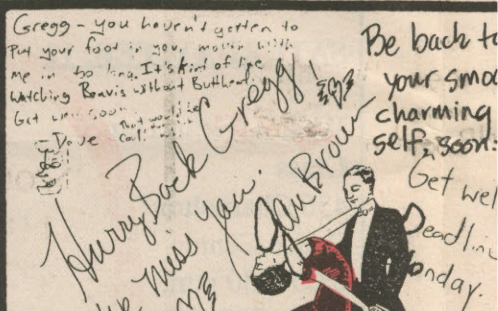 Gregg - you haven't gotten to
put your foot in your mouth with
me in so long. It's kind of like
watching Beavis without Butthead.
Get well soon.
Dave
That would be
Cool!
Hurry Back Gregg!
We Miss You.
Jan Brown
Be back to
your smoo
charming
self, soon.
Get wel
Deadline
onday.